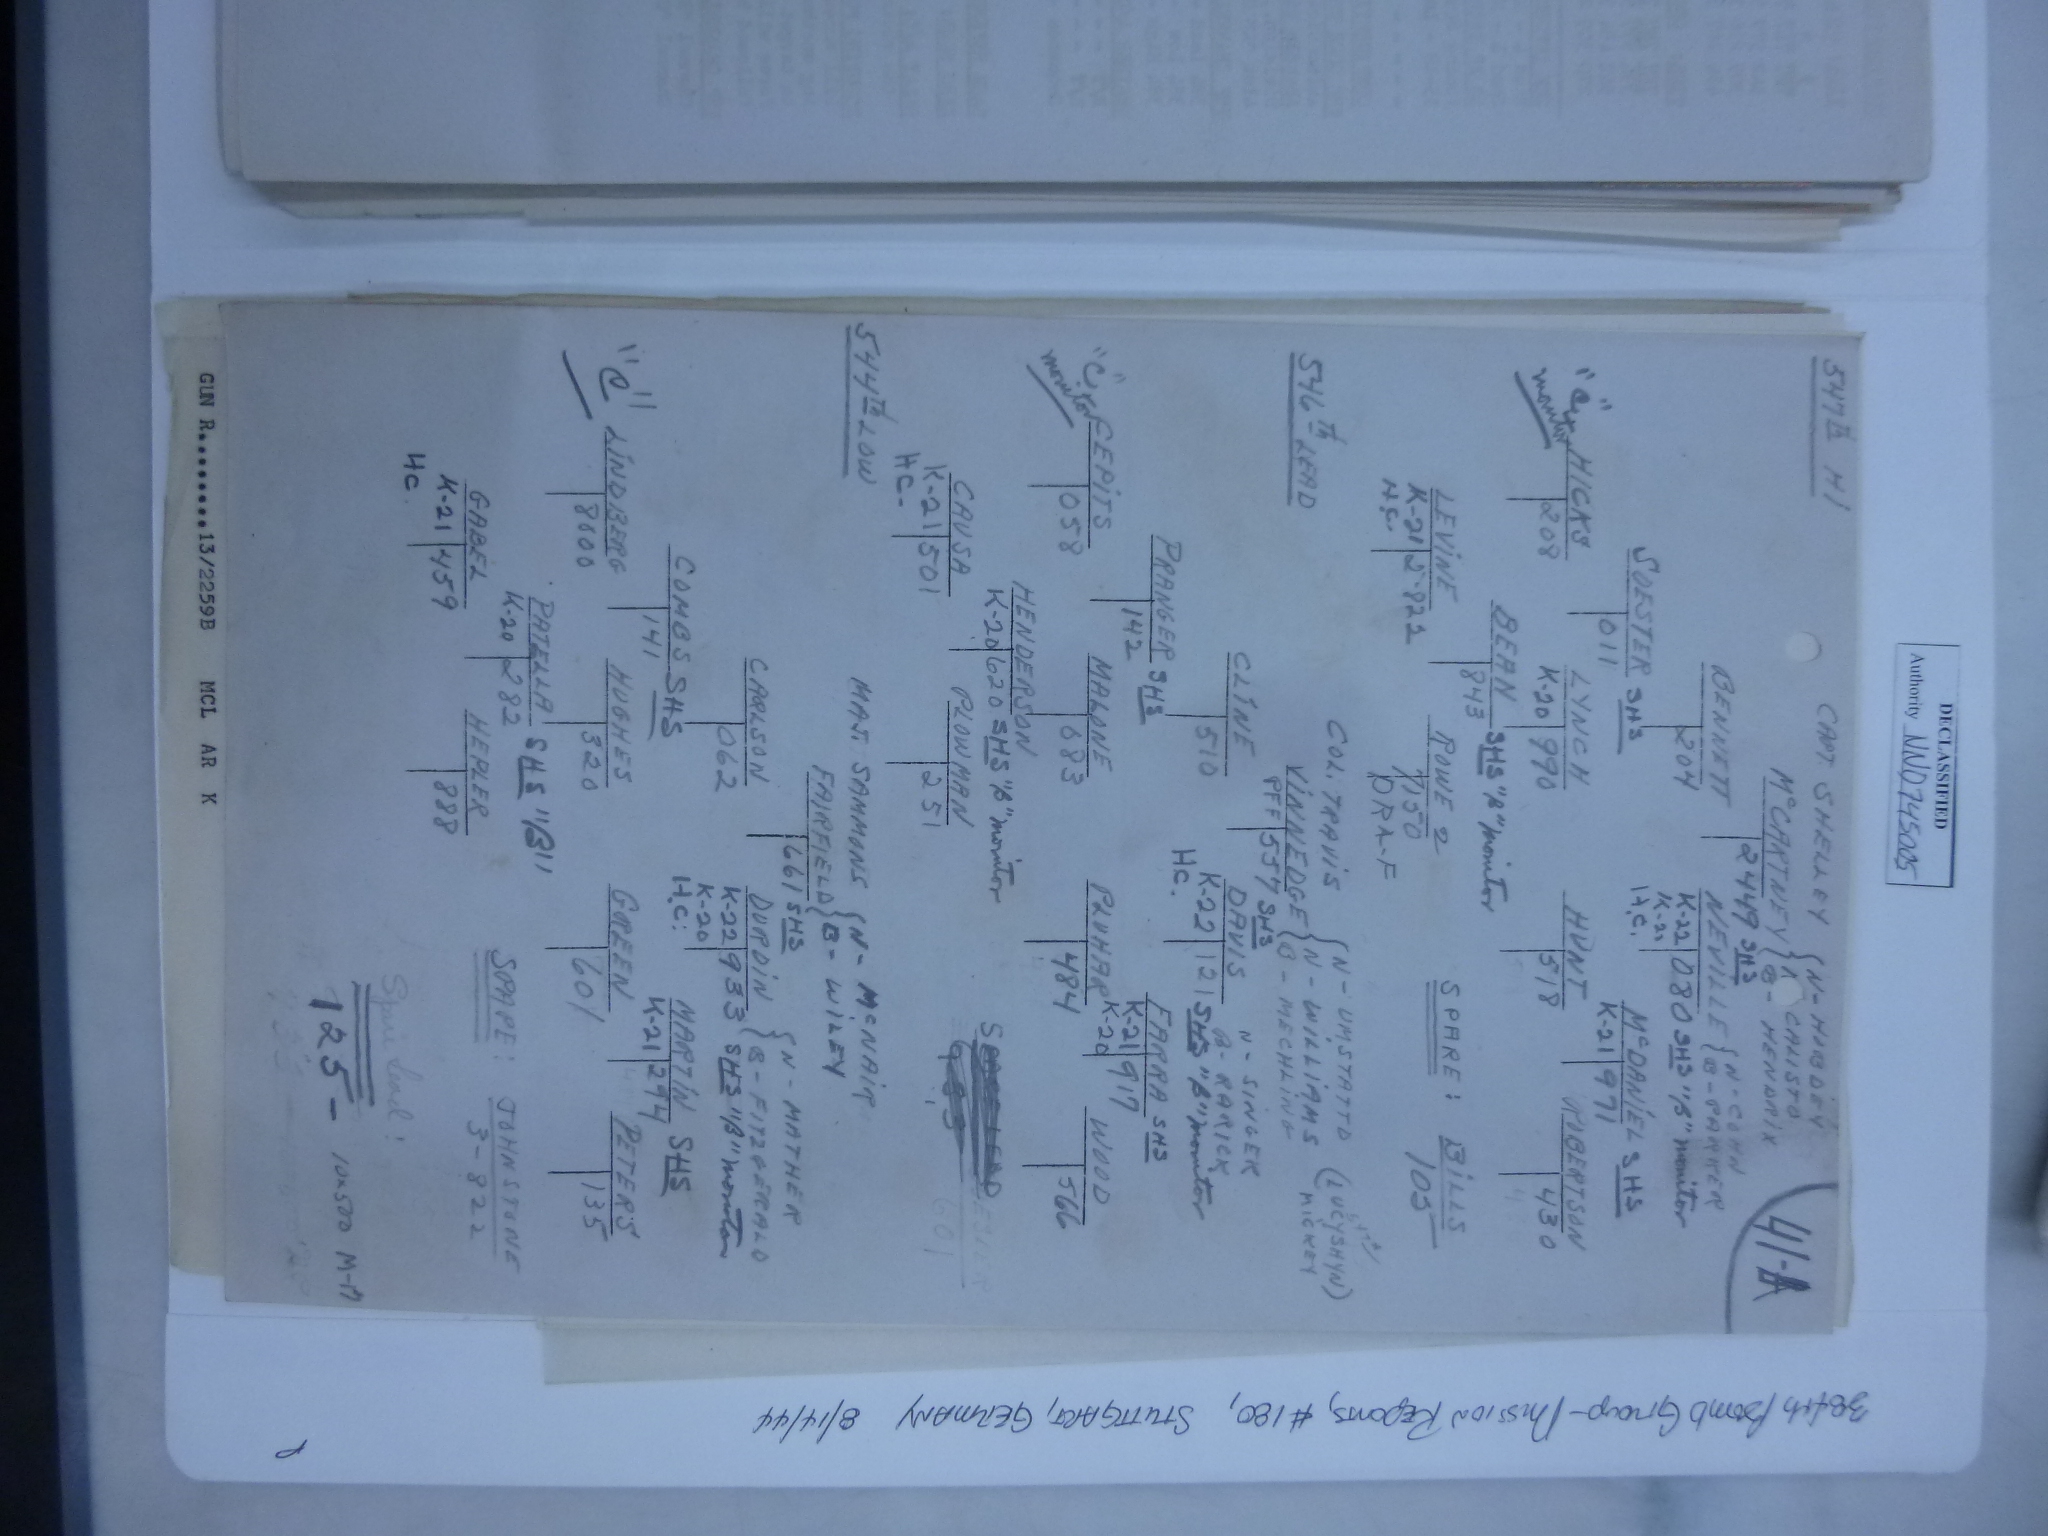 DECLASSIFIED
Authority NND745005
41-A
547th HI
CAPT. SHELLEY {N-HUBDEY
McCARTNEY {N-CALISTO
B-HENDRIX
2449 SHS
BENNETT
204
NEVILLE {N-COHN
B-PARKER
K-22 080 SHS "B" monitor
K-21
H.C.
SOESTER SHS
011
McDANIEL SHS
K-21 971
"C" monitor
HICKS
208
LYNCH
K-20 990
HUNT
518
ROBERTSON
430
BEAN SHS "B" monitor
843
LEVINE
K-21 2-822
H.C.
ROWE 2
150
DRA-F
SPARE: BILLS
103
546th LEAD
COL. TRAVIS {N-UMSTATTD (LUCYSHYN)
MICKEY
VINNEDGE {N-WILLIAMS
B-MECHLING
PFF 557 SHS
CLINE
510
DAVIS N-SINGER
B-RARICK
K-22 121 SHS "B" monitor
H.C.
PRANGER SHS
142
FARRA SHS
K-21 917
K-20
"C" monitor
GEPITS
058
MALONE
683
PLUHAR
484
WOOD
566
HENDERSON
K-20 620 SHS "B" monitor
CAUSA
K-21 501
H.C.
PLOWMAN
251
601
544th LOW
MAJ. SAMMONS {N-McNAIR
FAIRFIELD {B-WILEY
661 SHS
CARLSON
062
DURDIN {N-MATHER
B-FITZGERALD
K-22 933 SHS "B" monitor
K-20
H.C.
COMBS SHS
141
MARTIN SHS
K-21 294
"C"
LINDBERG
8800
HUGHES
320
GREEN
601
PETERS
135
PATELLA SHS "B"
K-20 282
GABEL
K-21 459
H.C.
HEPLER
888
SPARE: JOHNSTONE
3-822
Spare Lead:
125- 10x500 M-17
GUN R.......13/2259B MCL AR K
384th Bomb Group-Mission Reports, #180, STUTTGART, GERMANY 8/14/44
P